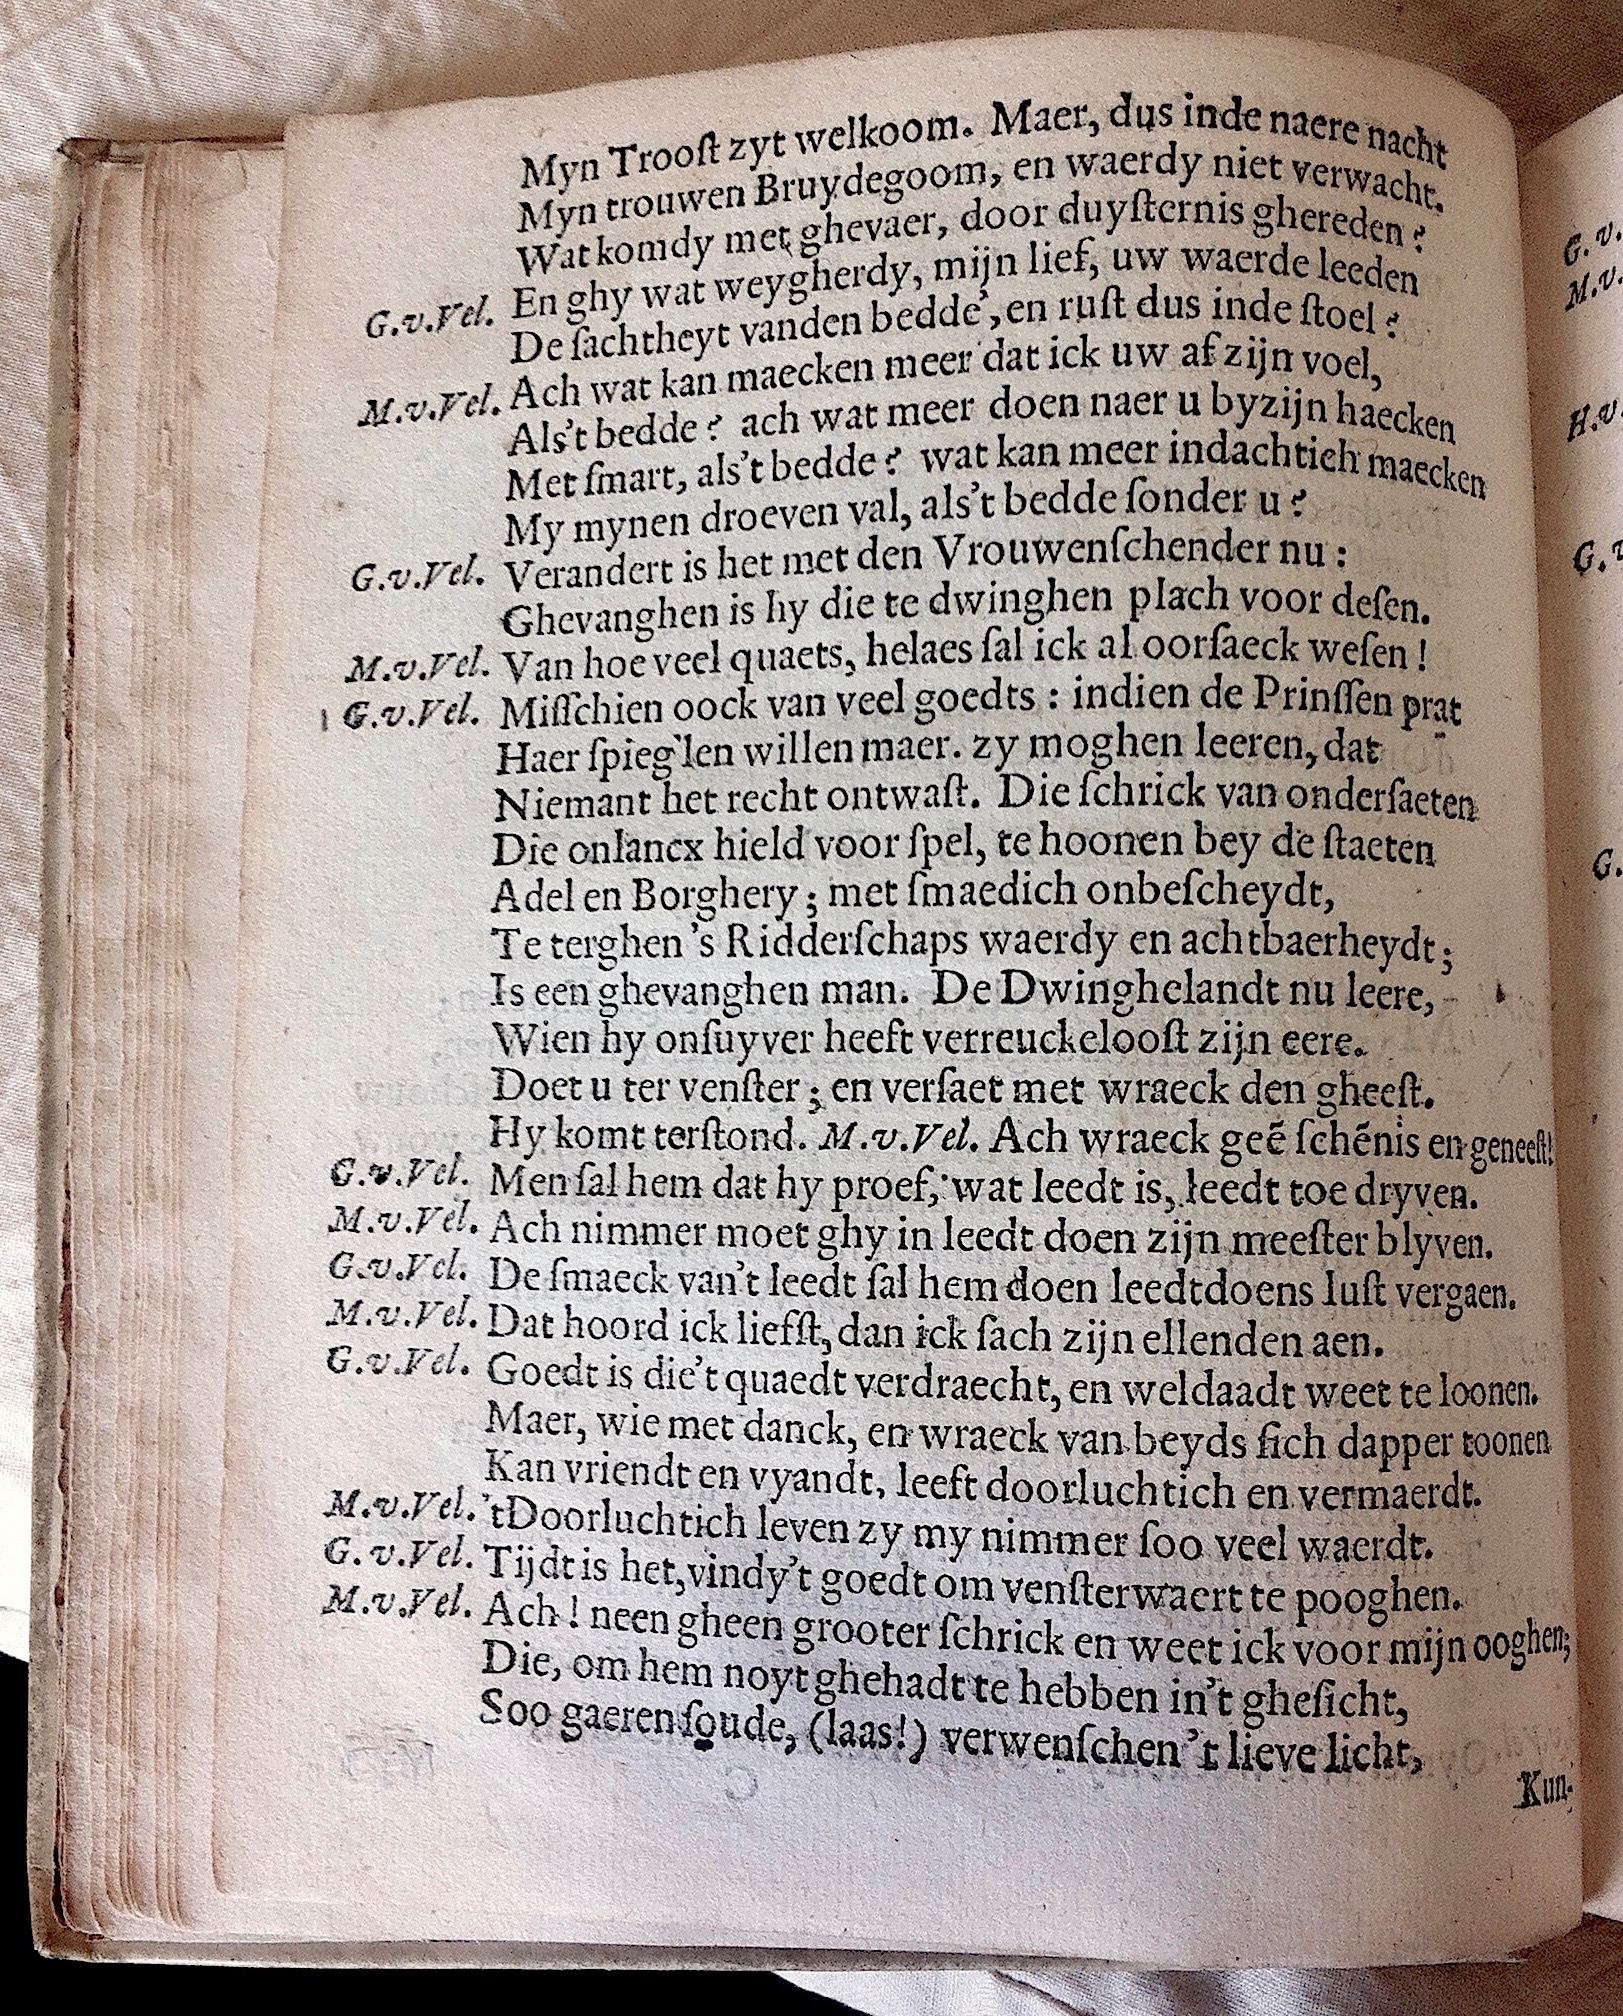 Myn Trooſt zyt welkoom. Maer, dus inde naere nacht
Myn trouwen Bruydegoom, en waerdy niet verwacht.
Wat komdy met ghevaer, door duyſternis ghereden?
G.v.Vel. En ghy wat weygherdy, mijn lief, uw waerde leeden
De ſachtheyt vanden bedde', en ruſt dus inde ſtoel?
M.v.Vel. Ach wat kan maecken meer dat ick uw af zijn voel,
Als't bedde? ach wat meer doen naer u byzijn haecken
Met ſmart, als't bedde? wat kan meer indachtich maecken
My mynen droeven val, als't bedde ſonder u?
G.v.Vel. Verandert is het met den Vrouwenſchender nu:
Ghevanghen is hy die te dwinghen plach voor deſen.
M.v.Vel. Van hoe veel quaets, helaes ſal ick al oorſaeck weſen!
G.v.Vel. Miſſchien oock van veel goedts: indien de Prinſſen prat
Haer ſpieg'len willen maer. zy moghen leeren, dat
Niemant het recht ontwaſt. Die ſchrick van onderſaeten
Die onlancx hield voor ſpel, te hoonen bey de ſtaeten
Adel en Borghery; met ſmaedich onbeſcheydt,
Te terghen 's Ridderſchaps waerdy en achtbaerheydt;
Is een ghevanghen man. De Dwinghelandt nu leere,
Wien hy onſuyver heeft verreuckelooſt zijn eere.
Doet u ter venſter; en verſaet met wraeck den gheeſt.
Hy komt terſtond. M.v.Vel. Ach wraeck geẽ ſchẽnis en geneeſt!
G.v.Vel. Men ſal hem dat hy proef, wat leedt is, leedt toe dryven.
M.v.Vel. Ach nimmer moet ghy in leedt doen zijn meeſter blyven.
G.v.Vel. De ſmaeck van't leedt ſal hem doen leedtdoens luſt vergaen.
M.v.Vel. Dat hoord ick liefſt, dan ick ſach zijn ellenden aen.
G.v.Vel. Goedt is die't quaedt verdraecht, en weldaadt weet te loonen.
Maer, wie met danck, en wraeck van beyds ſich dapper toonen
Kan vriendt en vyandt, leeft doorluchtich en vermaerdt.
M.v.Vel. 'tDoorluchtich leven zy my nimmer ſoo veel waerdt.
G.v.Vel. Tijdt is het, vindy't goedt om venſterwaert te pooghen.
M.v.Vel. Ach! neen gheen grooter ſchrick en weet ick voor mijn ooghen;
Die, om hem noyt ghehadt te hebben in't gheſicht,
Soo gaeren ſoude, (laas!) verwenſchen 't lieve licht,
Kun-
G. v.
M.v.
H.v.
G.v
G.